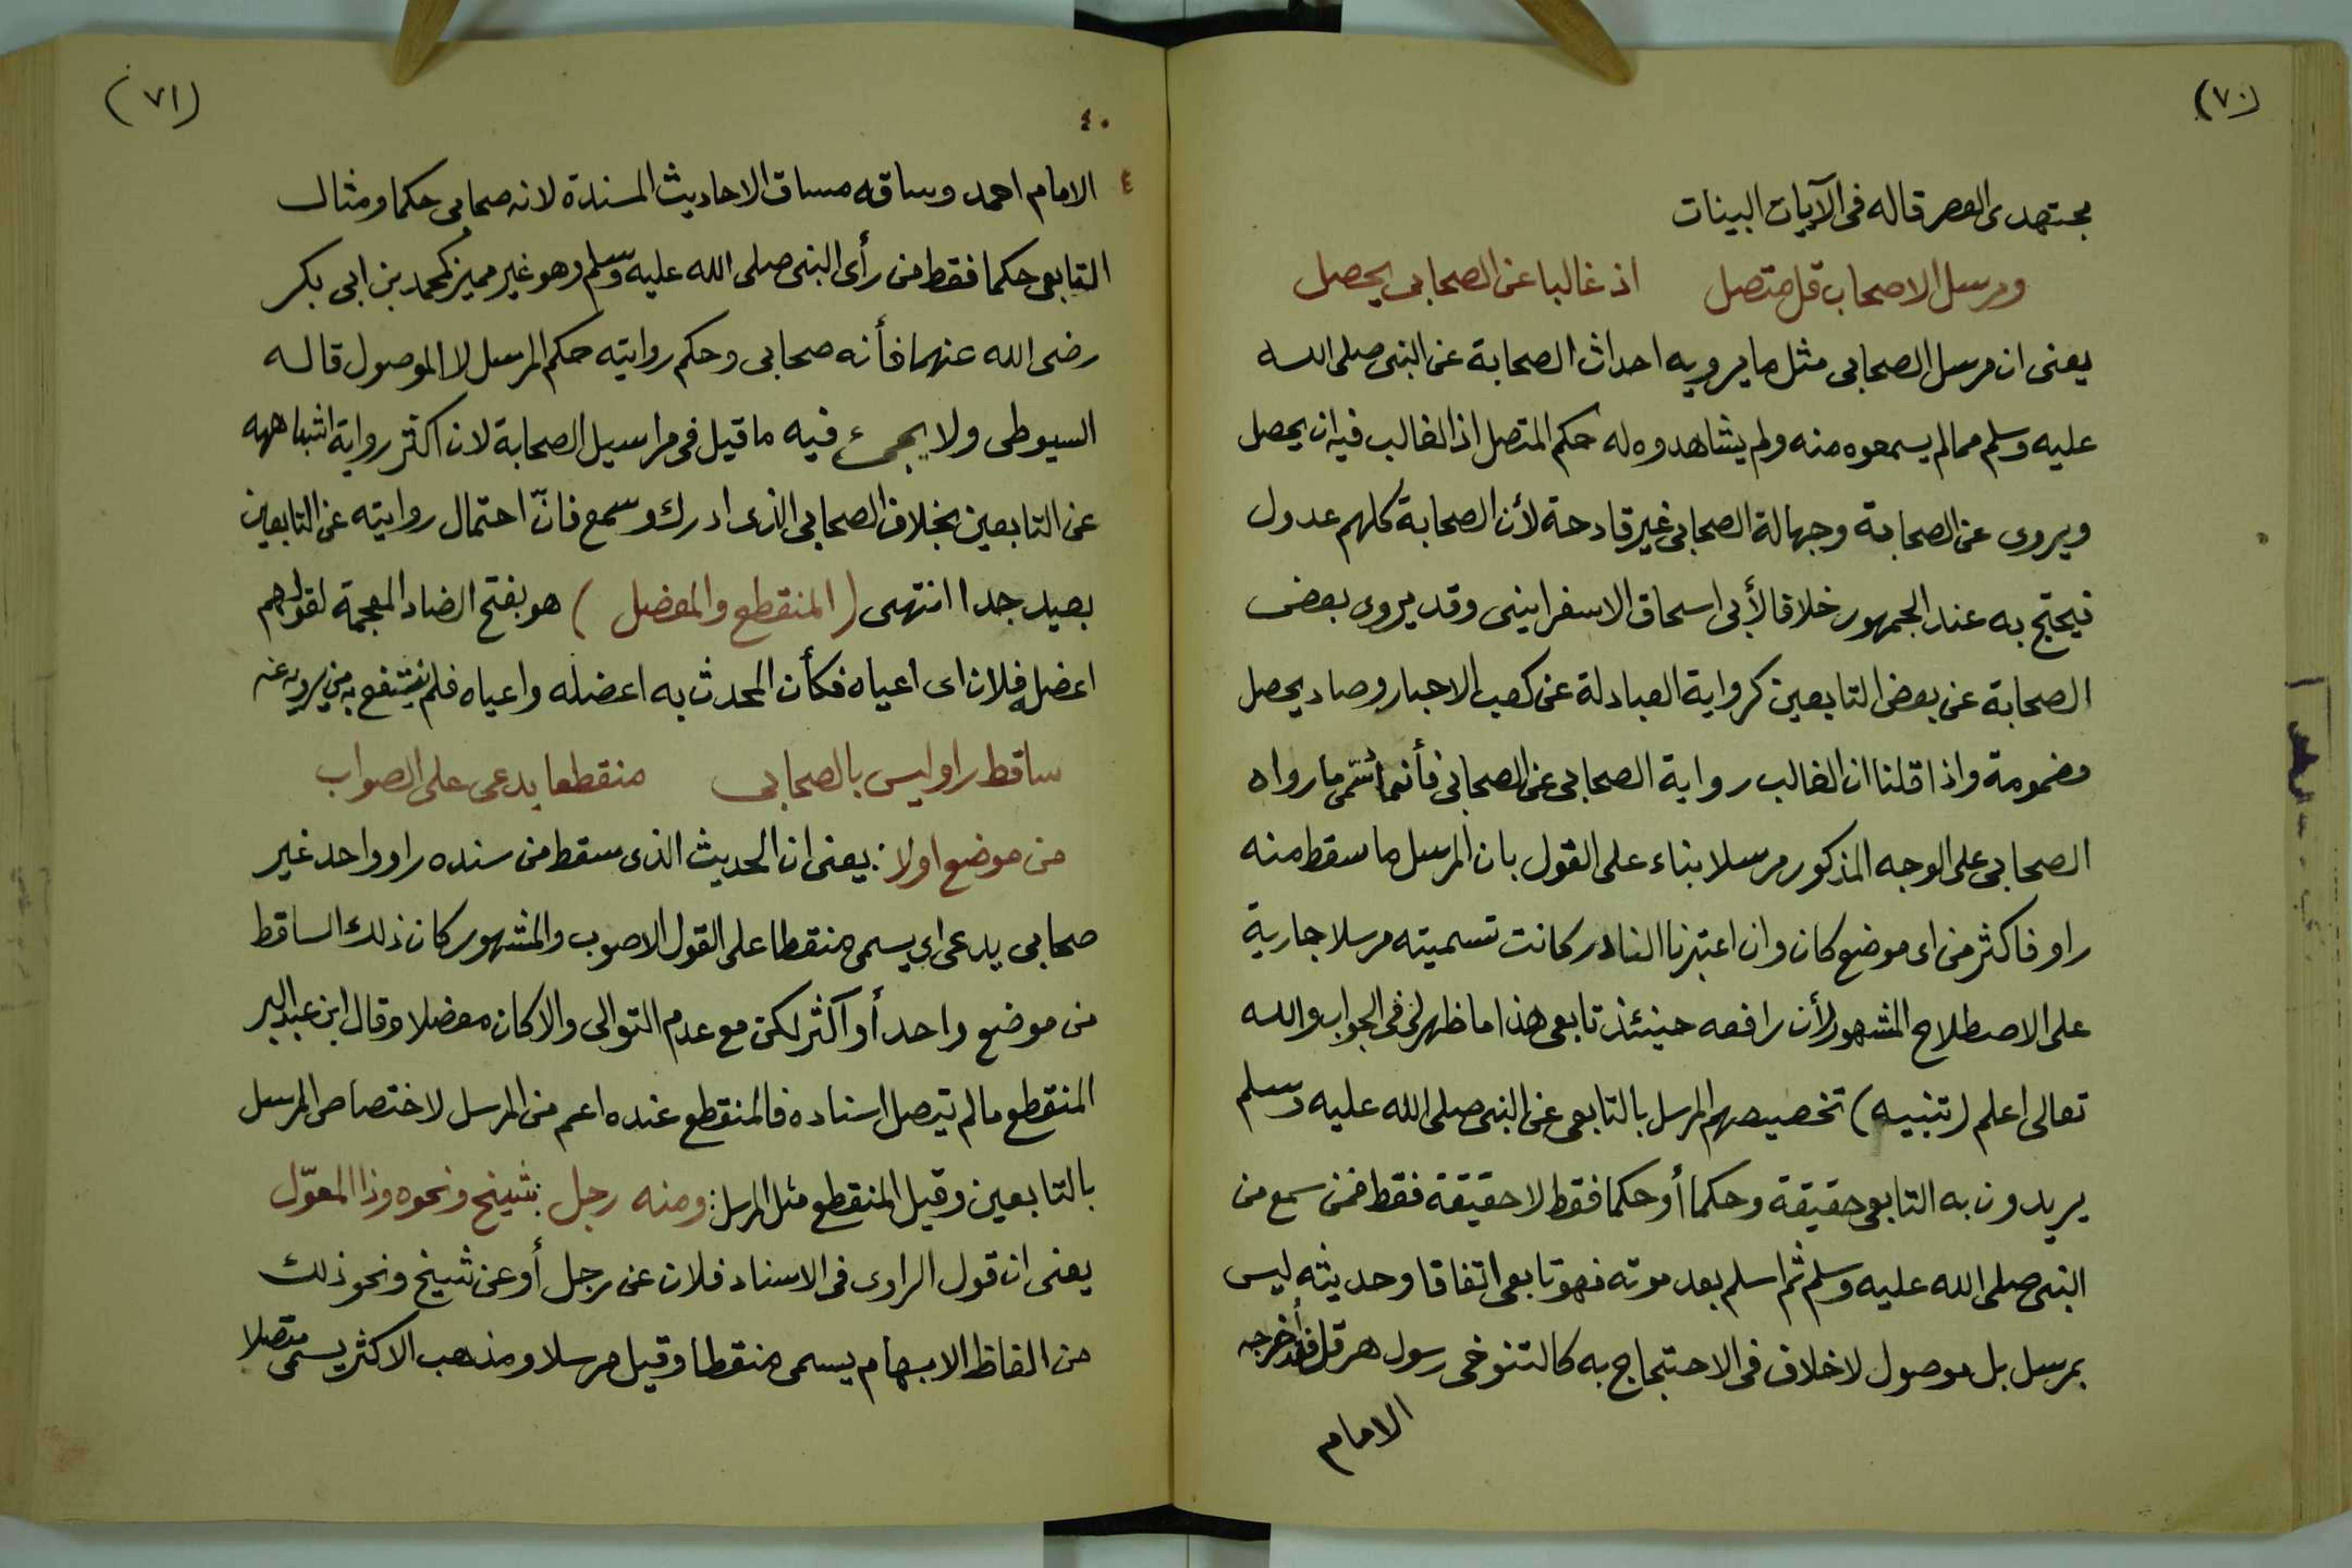 (٧٠)
مجتهدى العصر قاله فى الآيات البينات
ومرسل الاصحاب قل متصل اذ غالبا عن الصحابى يحصل
يعنى ان مرسل الصحابى مثل ما يرويه احداث الصحابة عن النبى صلى الله
عليه وسلم مما لم يسمعوه منه ولم يشاهدوه له حكم المتصل اذ الغالب فيه ان يحصل
ويروى عن الصحابة وجهالة الصحابى غير قادحة لأن الصحابة كلهم عدول
فيحتج به عند الجمهور خلافا لأبى اسحاق الاسفراينى وقد يروى بعض
الصحابة عن بعض التابعين كرواية العبادلة عن كعب الاحبار وصاد يحصل
مضمومة واذا قلنا ان الغالب رواية الصحابى عن الصحابى فأنما سُمّى ما رواه
الصحابى على الوجه المذكور مرسلا بناء على القول بان المرسل ما سقط منه
راو فاكثر من اى موضع كان وان اعتبرنا النادر كانت تسميته مرسلا جارية
على الاصطلاح المشهور لأن رافعه حينئذ تابعى هذا ما ظهر لى فى الجواب والله
تعالى اعلم (تنبيه) تخصيصهم المرسل بالتابعى عن النبى صلى الله عليه وسلم
يريدون به التابعى حقيقة وحكما أو حكما فقط لا حقيقة فقط فمن سمع من
النبى صلى الله عليه وسلم ثم اسلم بعد موته فهو تابعى اتفاقا وحديثه ليس
بمرسل بل موصول لا خلاف فى الاحتجاج به كالتنوخى رسول هرقل فقد أخرجه
الامام
(٧١)
٤٠
٤
الامام احمد وساقه مساق الاحاديث المسندة لانه صحابى حكما ومثال
التابعى حكما فقط من رأى النبى صلى الله عليه وسلم وهو غير مميز كمحمد بن ابى بكر
رضى الله عنهما فأنه صحابى وحكم روايته حكم المرسل لا الموصول قاله
السيوطى ولا يجىء فيه ما قيل فى مراسيل الصحابة لان اكثر رواية اشباهه
عن التابعين بخلاف الصحابى الذى ادرك وسمع فانّ احتمال روايته عن التابعين
بعيد جدا انتهى (المنقطع والمعضل) هو بفتح الضاد المعجمة لقولهم
اعضل فلان اى اعياه فكأن المحدث به اعضله واعياه فلم ينتفع به من يرويه عنه
ساقط راو ليس بالصحابى منقطعا يدعى على الصواب
من موضع اولا: يعنى ان الحديث الذى سقط من سنده راو واحد غير
صحابى يدعى اى يسمى منقطعا على القول الاصوب والمشهور كان ذلك الساقط
من موضع واحد أو اكثر لكن مع عدم التوالى والا كان معضلا وقال ابن عبد البر
المنقطع ما لم يتصل اسناده فالمنقطع عنده اعم من المرسل لاختصاص المرسل
بالتابعين وقيل المنقطع مثل المرسل: ومنه رجل: شيخ ونحوه وذا المعوّل
يعنى ان قول الراوى فى الاسناد فلان عن رجل أو عن شيخ ونحو ذلك
من الفاظ الابهام يسمى منقطعا وقيل مرسلا ومذهب الاكثر يسمى متصلا